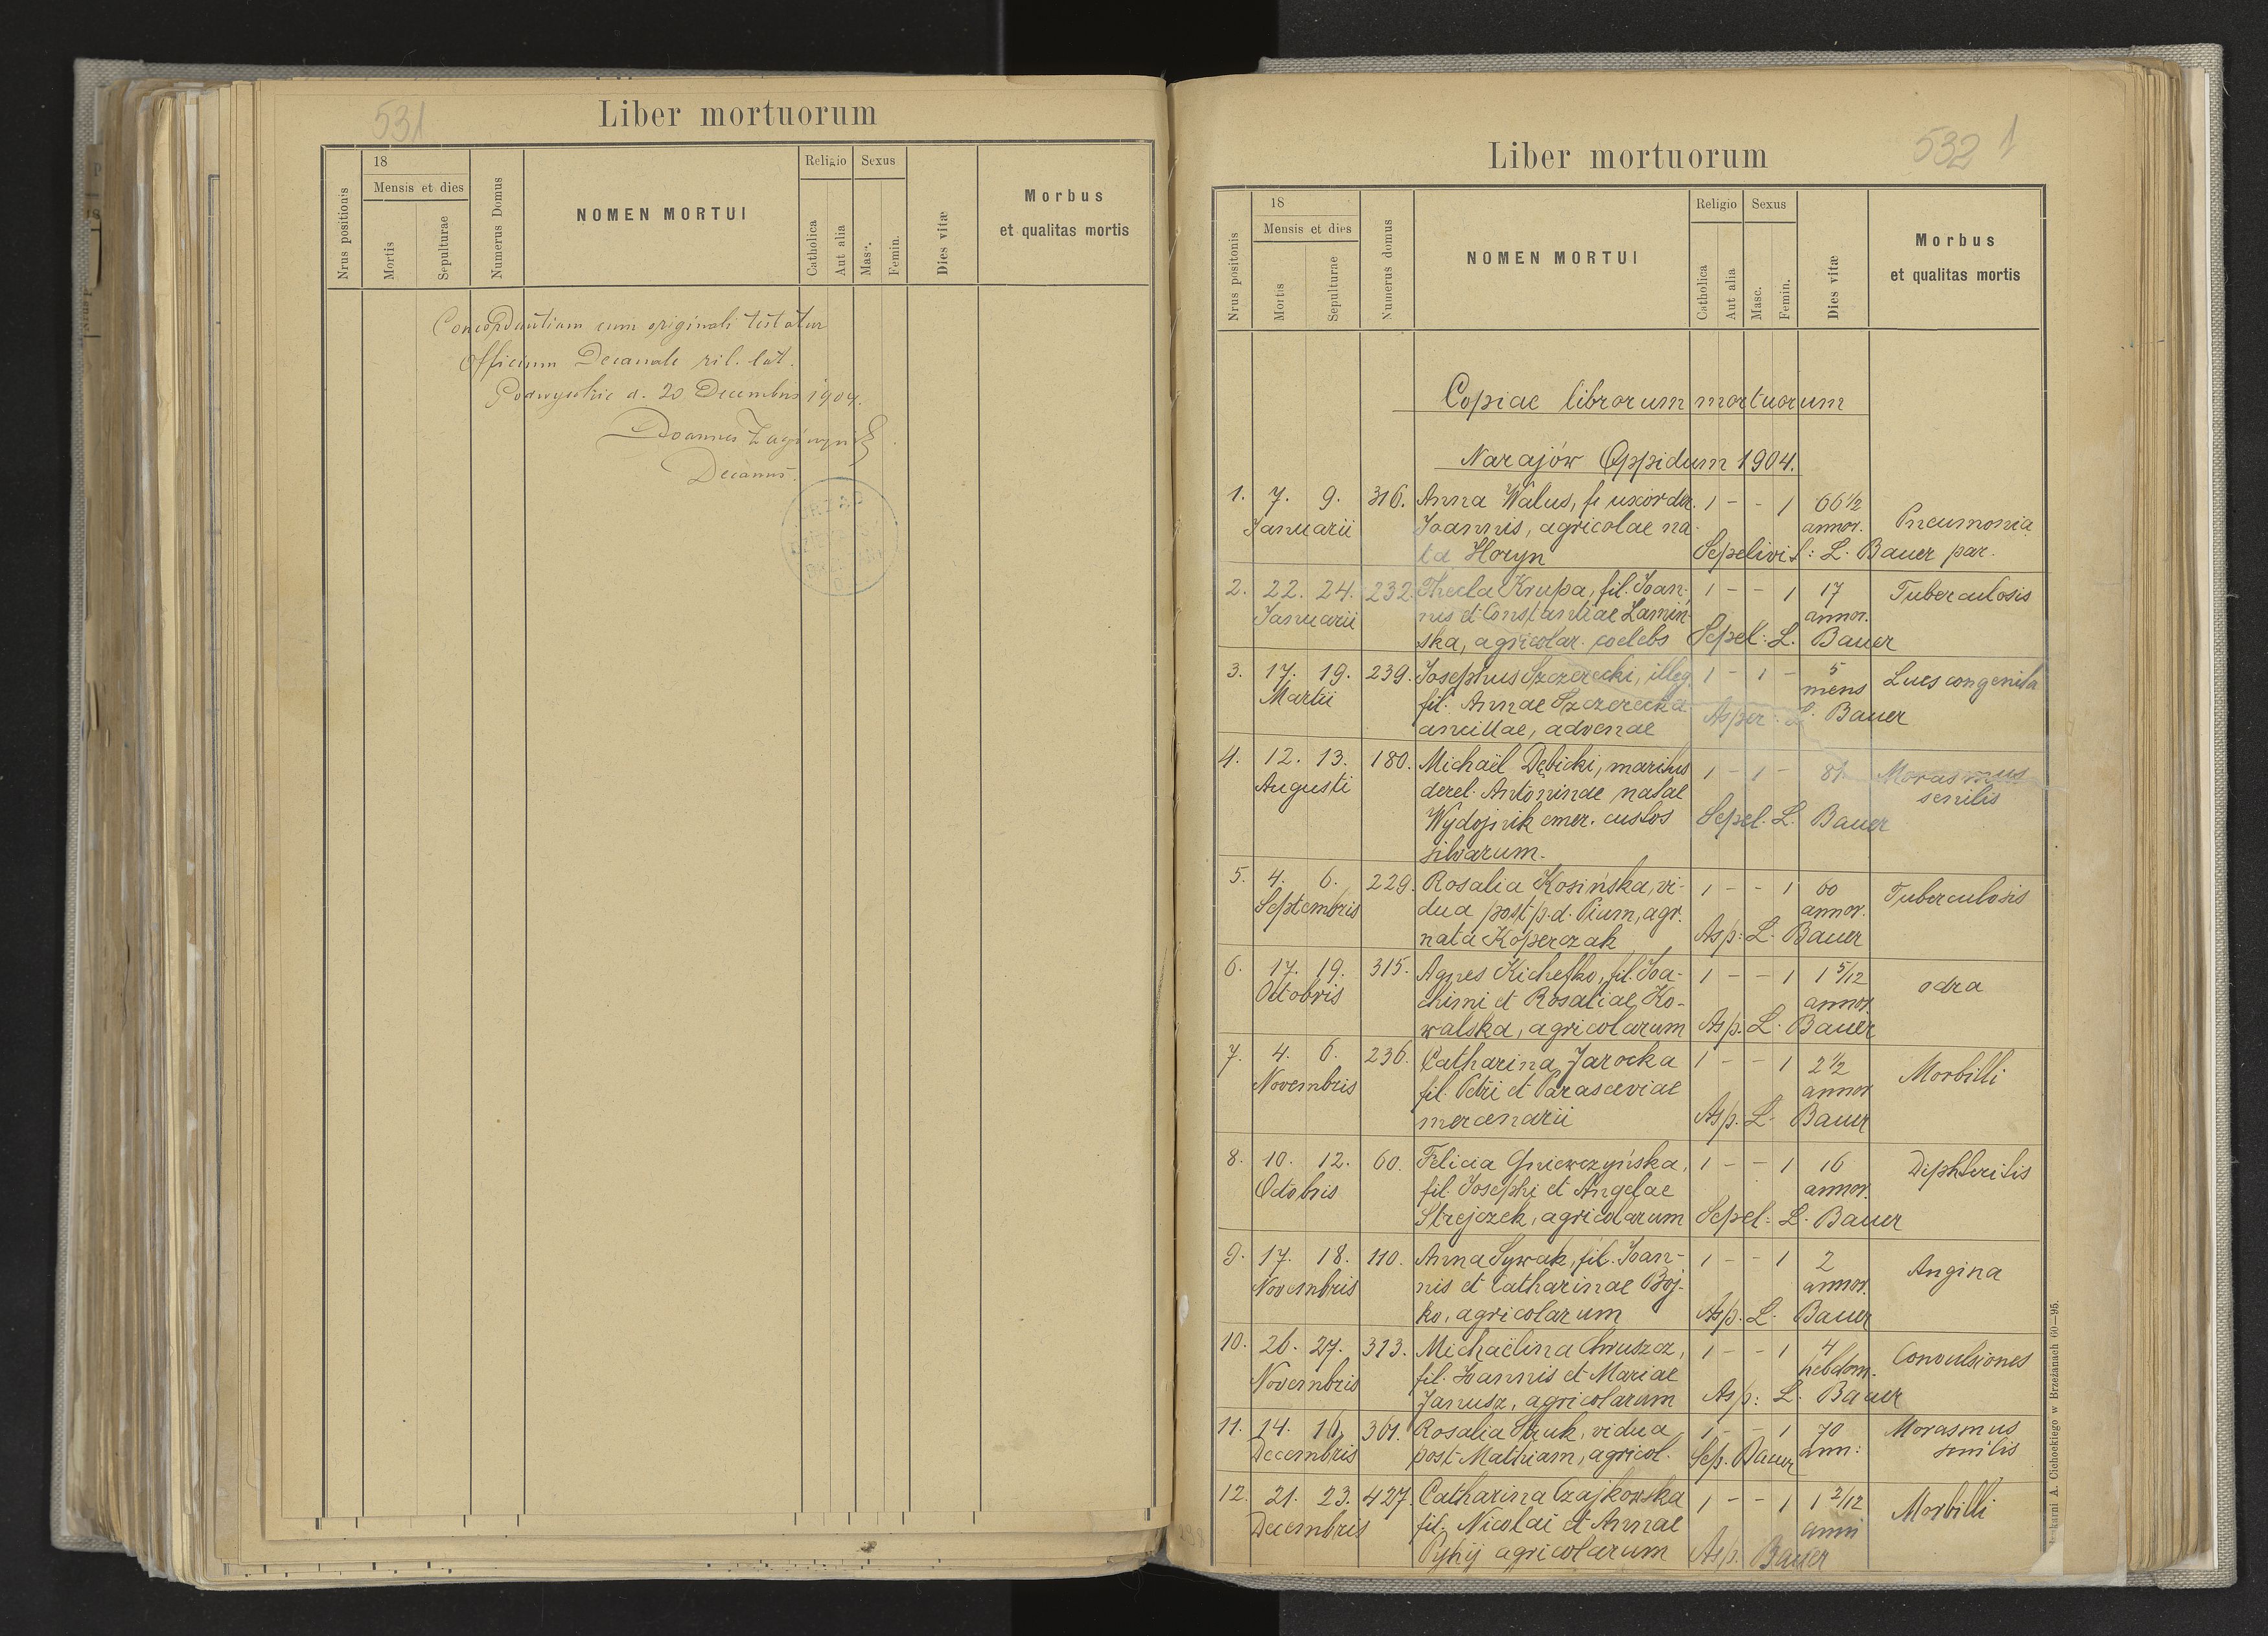 531
Liber mortuorum
Nrus positionis
18
Mensis et dies
Mortis
Sepulturae
Numerus Domus
NOMEN MORTUI
Religio
Catholica
Aut alia
Sexus
Masc.
Femin.
Dies vitæ
Morbus
et qualitas mortis
Concordantiam cum originali testatur
Officium Decanale rit. lat.
d. 20 Decembris 1904.
Joannes
Decanus.
532 1
Liber mortuorum
Nrus positonis
18
Mensis et dies
Mortis
Sepulturae
Numerus domus
NOMEN MORTUI
Religio
Catholica
Aut alia
Sexus
Masc.
Femin.
Dies vitæ
Morbus
et qualitas mortis
Copiae librorum mortuorum
Narajów Oppidum 1904.
1. 7. 9. 316. Anna Walus, uxor der. 1 - - 1 66 1/2
Januarii Joannis, agricolae na- annor. Pneumonia
ta Horyn Sepelivit: L. Bauer par.
2. 22. 24. 232. Thecla Krupa, fil. Joan- 1 - - 1 17 Tuberculosis
Januarii nis et Constantiae Lamiń- annor.
ska, agricolar. coelebs Sepel: L. Bauer
3. 17. 19. 239. Josephus Szczerecki, illeg. 1 - 1 - 5 Lues congenita
Martii fil. Annae Szczerecka mens
ancillae, advenae Asper: L. Bauer
4. 12. 13. 180. Michaël Dębicki, maritus 1 - 1 - Morasmus
Augusti derel. Antoninae natae senilis
Wydojnik emer. custos Sepel. L. Bauer
silvarum.
5. 4. 6. 229. Rosalia Kosińska, vi- 1 - - 1 60 Tuberculosis
Septembris dua post p. d. Pium, agr. annor.
nata Koperczak Asp: L. Bauer
6. 17. 19. 315. Agnes Kichefko, fil. Joa- 1 - - 1 1 5/12 odra
Octobris chimi et Rosaliae Ko- annor.
walska, agricolarum Asp. L. Bauer
7. 4. 6. 236. Catharina Jarocka 1 - - 1 2 1/2 Morbilli
Novembris fil. Petri et Parasceviae annor
mercenarii Asp. L. Bauer
8. 10. 12. 60. Felicia Gniewczyńska, 1 - - 1 16 Diphteritis
Octobris fil. Josephi et Angelae annor.
Strejczek, agricolarum Sepel: L. Bauer
9. 17. 18. 110. Anna Sywak, fil. Joan- 1 - - 1 2 Angina
Novembris nis et Catharinae Boj- annor.
ko, agricolarum Asp. L. Bauer
10. 26. 27. 313. Michaëlina Chruszcz, 1 - - 1 4 Convulsiones
Novembris fil. Joannis et Mariae hebdom.
Janusz, agricolarum Asp: L. Bauer
11. 14. 16. 301. Rosalia Struk, vidua 1 - - 1 70 Morasmus
Decembris post Mathiam, agricol. Sep. Bauer ann: senilis
12. 21. 23. 427. Catharina Czajkowska 1 - - 1 1 2/12 Morbilli
Decembris fil. Nicolai et Annae anni
Pyhij agricolarum Asp. Bauer
karni A. Cichockiego w Brzeżanach 60—95.